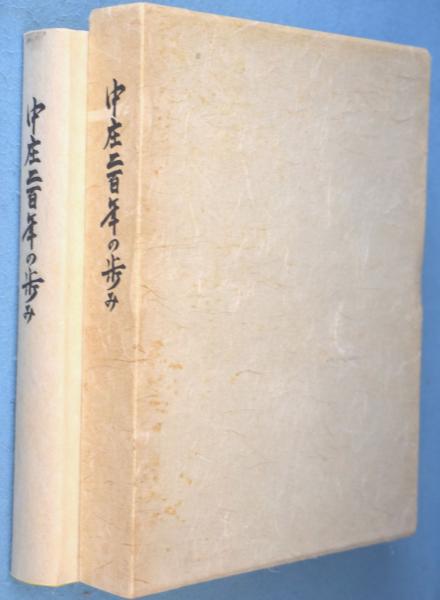 中庄二百年の歩み
中庄二百年の歩み